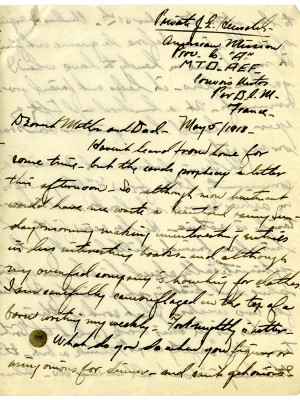 Private J.E.
American Mission
Prov. 6 "A"
M.T.D. A.E.F.
Convois Autos
Par B.C.M.
France.
Dearest Mother and Dad - May 5/1918 -
Haven't heard from home for
some time - but the cards prophesy a letter
this afternoon. So although now
would have me write a Sun-
day morning making entries
in less interesting books - and although
my company is howling for clothes
I am carefully camouflaged in the top of a
barn writing my weekly - fortnightly - letter -
What do you do when you figure on
onions for dinner - and